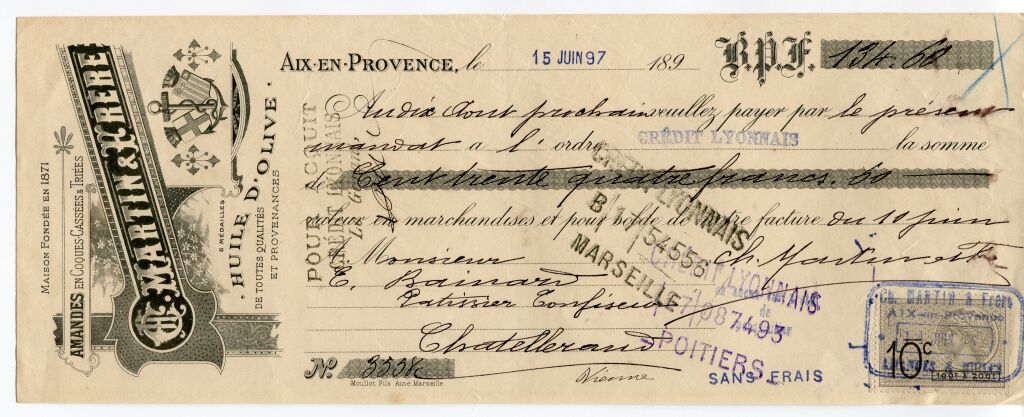 MAISON FONDÉE EN 1871
AMANDES EN COQUES-CASSÉES & TRIÉES
CH. MARTIN & FRÈRE
5 MÉDAILLES
HUILE D'OLIVE
DE TOUTES QUALITÉS
ET PROVENANCES
AIX-EN-PROVENCE, le 15 JUIN 97 189
B.P.F. 134.60
Au dix Août prochain veuillez payer par le présent
mandat à l'ordre CRÉDIT LYONNAIS la somme
de Cent trente quatre francs. 60
valeur en marchandises et pour solde de notre facture du 10 Juin
Monsieur Ch. Martin et Fre
E. Bainard
Patissier Confiseur
Chatelleraud
Vienne
No. 3558
Moullot Fils Aîné Marseille
POUR ACQUIT
CRÉDIT LYONNAIS
CRÉDIT LYONNAIS
B
54556
MARSEILLE
CRÉDIT LYONNAIS
087493
POITIERS
SANS FRAIS
CH. MARTIN & Frère
AIX-en-Provence
10c